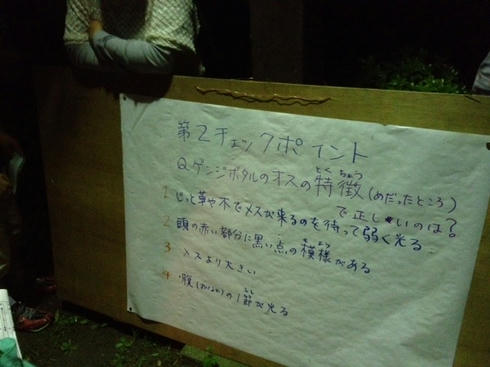 第2チェックポイント
Q.ゲンジボタルのオスの特徴(めだったところ)
とくちょう
で正しいのは?
1 じっと草や木でメスが来るのを待って弱く光る
2 頭の赤い部分に黒い点の模様がある
もよう
3 メスより大きい
4 腹(おなか)の1節が光る